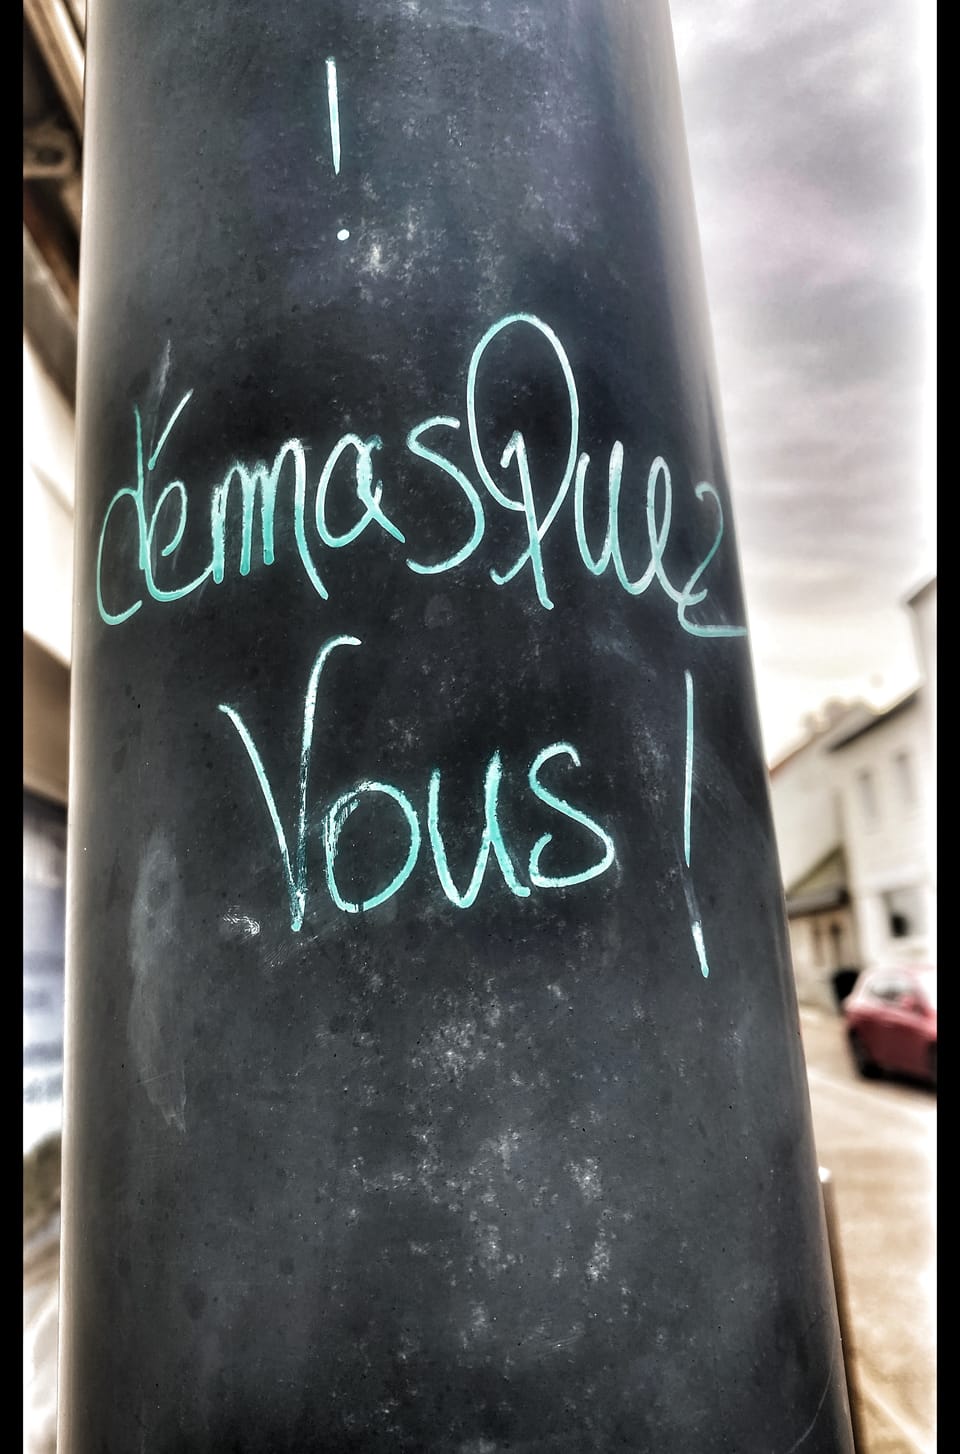 !
démasQuez
Vous !